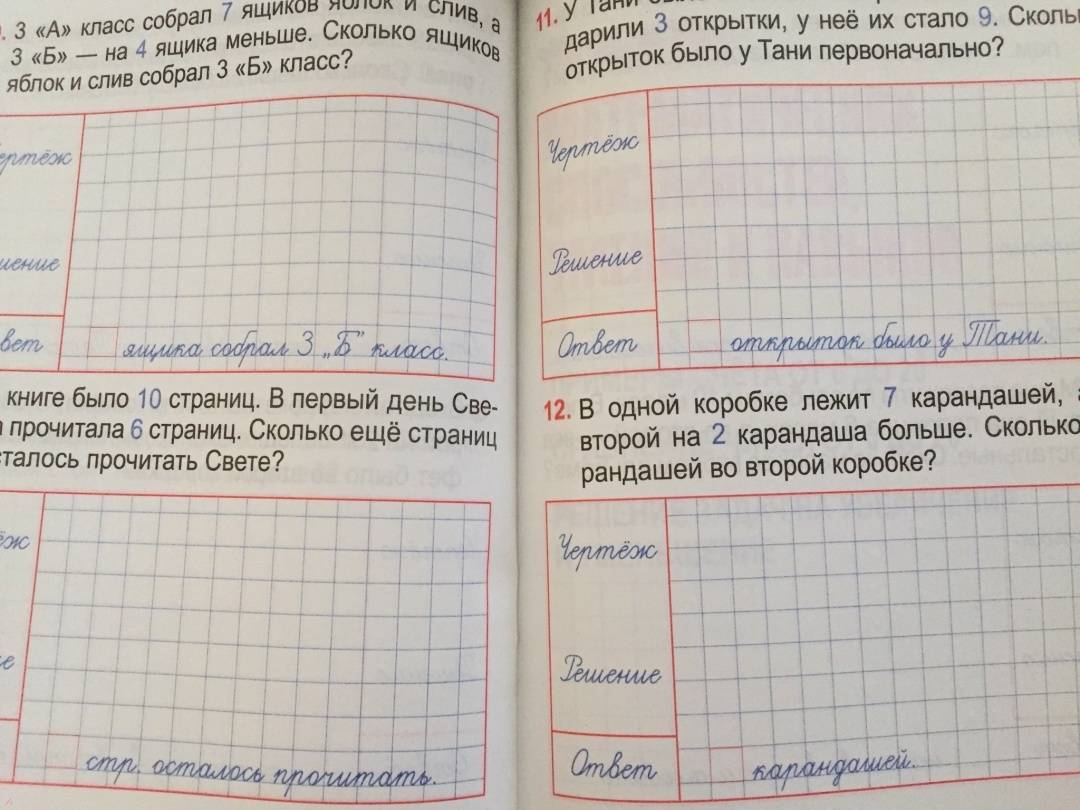 3 «А» класс собрал 7 ящиков яблок и слив, а
3 «Б» — на 4 ящика меньше. Сколько ящиков
яблок и слив собрал 3 «Б» класс?
ящика собрал 3 „Б" класс.
книге было 10 страниц. В первый день Све-
прочитала 6 страниц. Сколько ещё страниц
сталось прочитать Свете?
стр. осталось прочитать.
11. У Тани
дарили 3 открытки, у неё их стало 9. Сколь
открыток было у Тани первоначально?
Чертёж
Решение
Ответ открыток было у Тани.
12. В одной коробке лежит 7 карандашей,
второй на 2 карандаша больше. Сколько
рандашей во второй коробке?
Чертёж
Решение
Ответ карандашей.